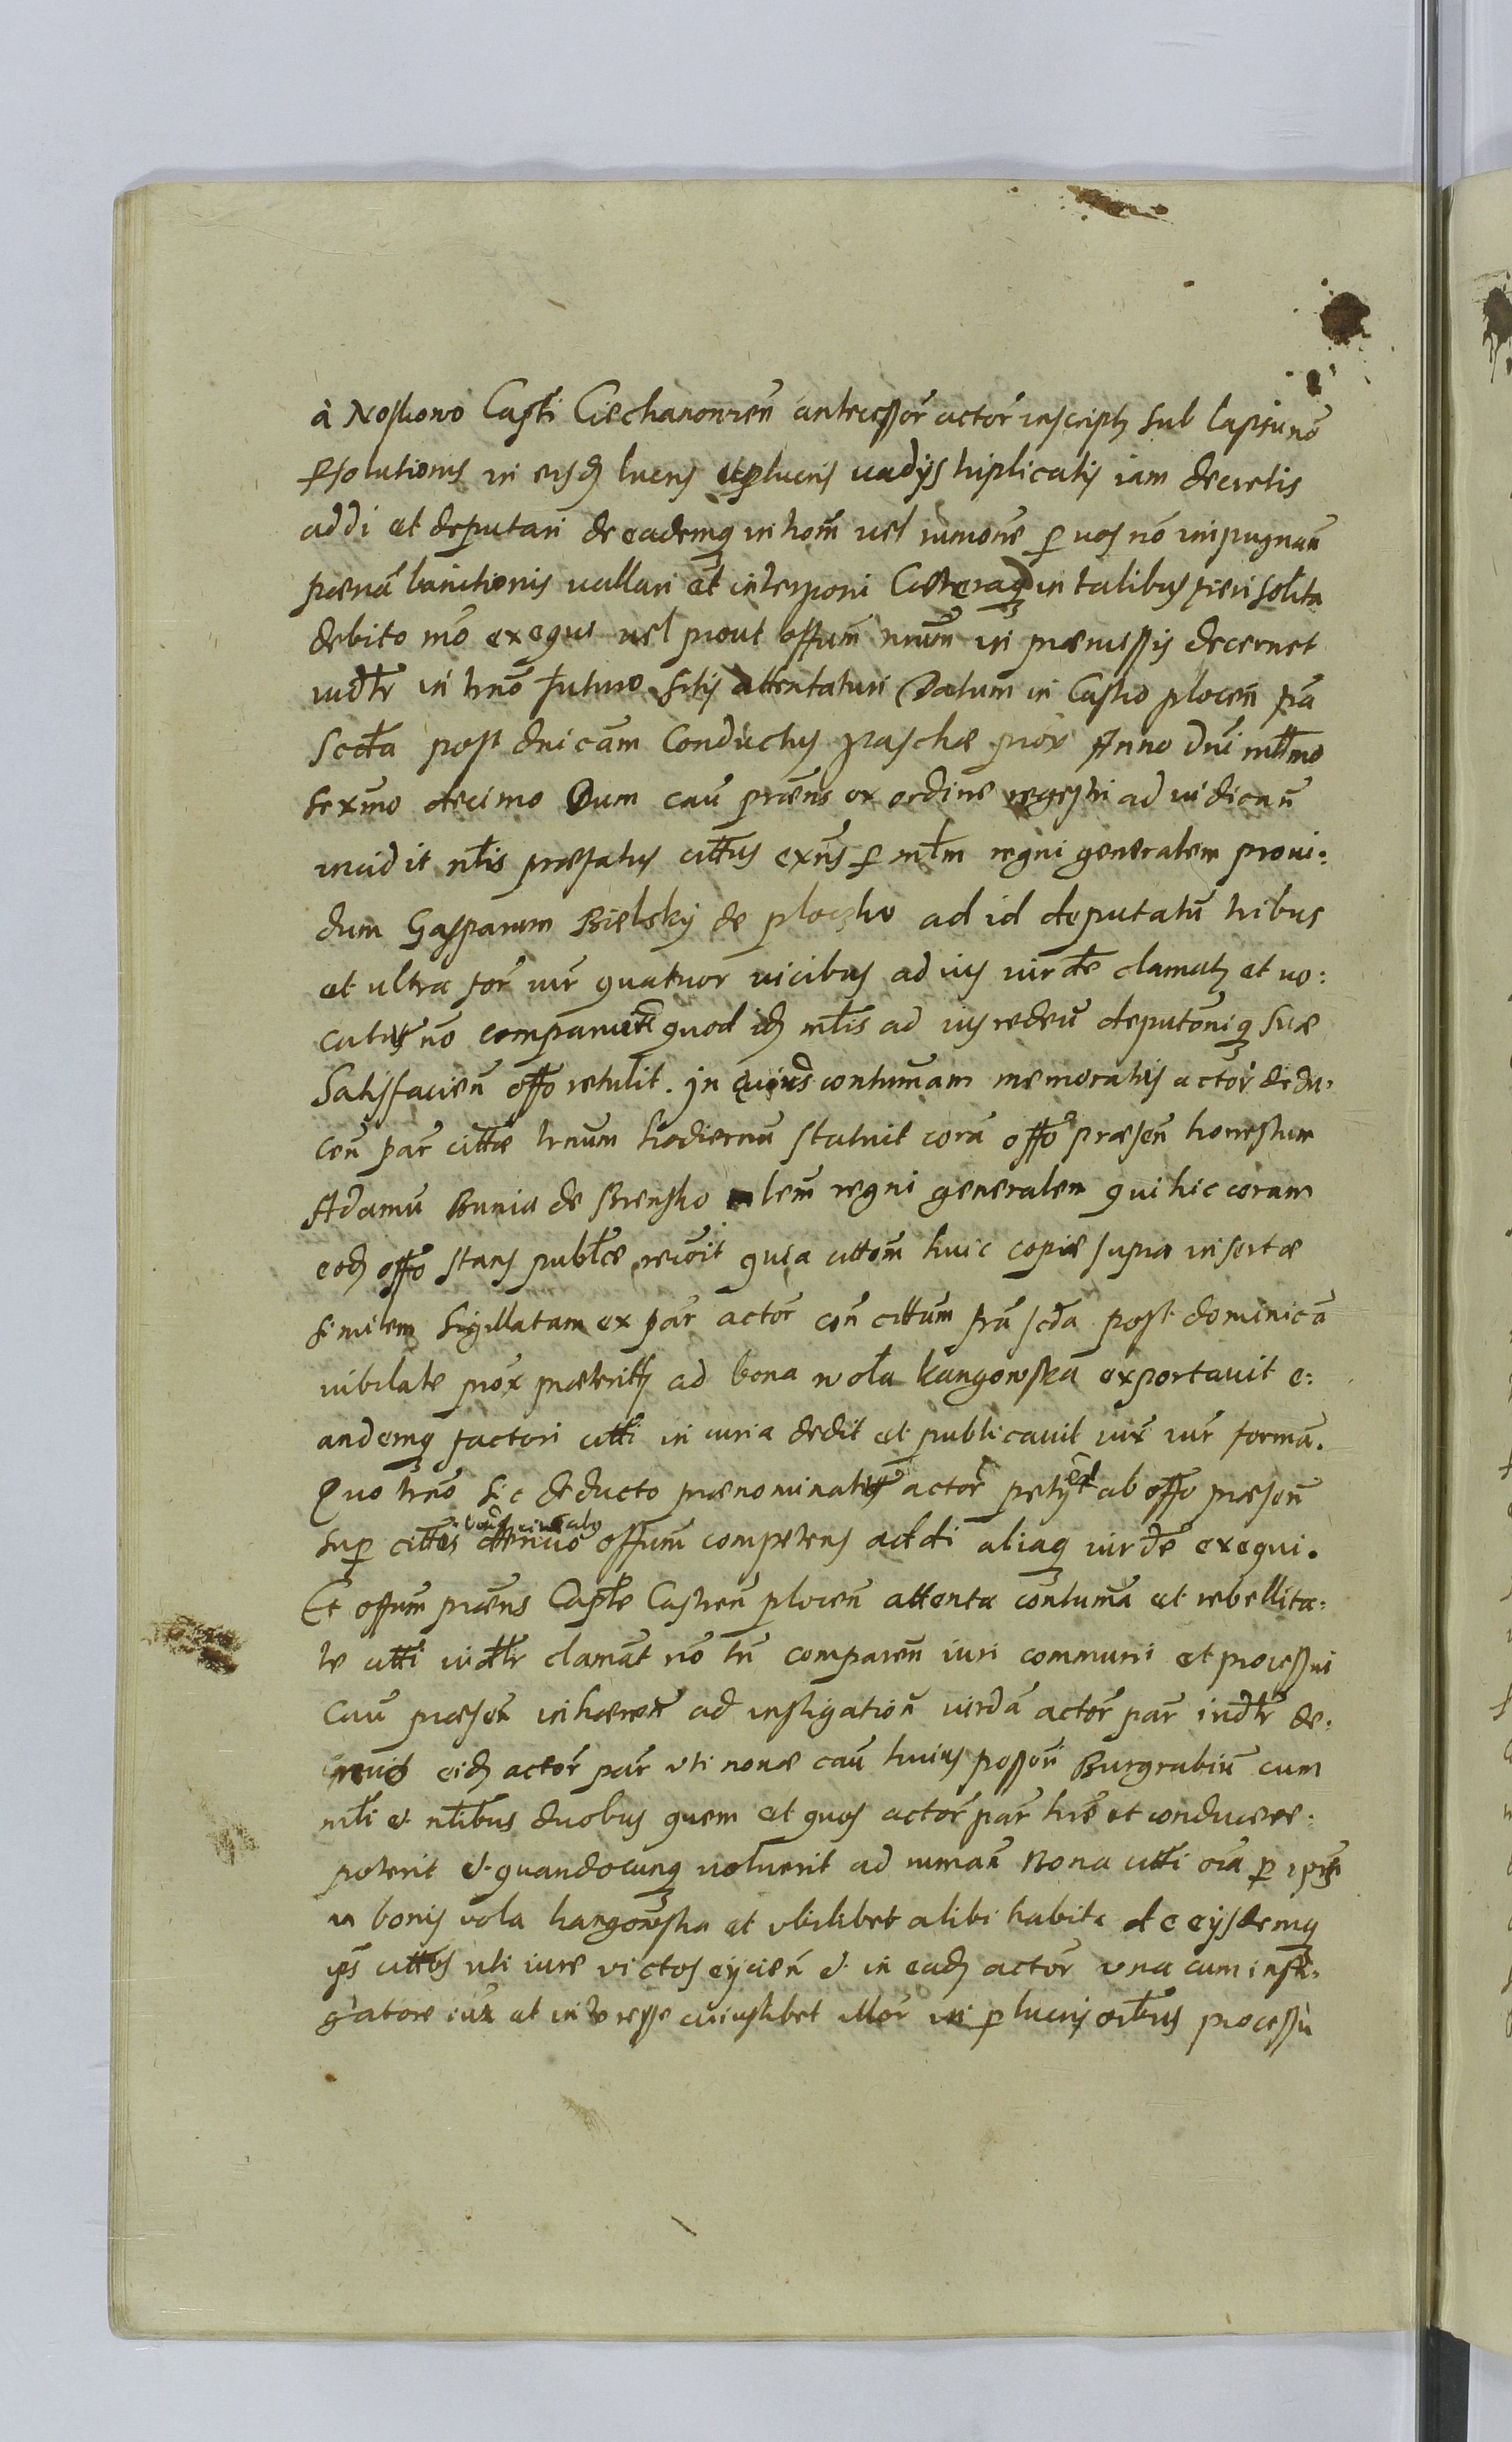 à Noskowo Castri Ciechanowień antecessor̃ actor̃ inscript sub lapsu nō
ꝑsolutionis in eisd lucris et ꝑlucris vadijs triplicatis iam decretis
addi et deputari de eademq in hom̄ vel iumone ꝑ vos nō impugnań
pœnā banitionis vallari et interponi Cæteraq in talibus fieri solita
debito mō exequi vel prout offum nrum in præmissis decernet
iudtr in trnō futuro sitis attentaturi Datum in Castro plocen̄ fra
Scda post dnicam Conductus paschæ prox Anno Dni mttmo
sexmo decimo Dum cau præns ex ordine regestri ad iudicań
incidit mlis præfatus cittus exns ꝑ mlm regni generalem proui:
dum Gasparum Bielsky de ploczko ad id deputatū tribus
et ultra for̃ iur̃ quatuor vicibus ad ius iurde clamat et vo:
catus nō comparuit quod id mlis ad ius redeu deputoniq suæ
Satisfacień offo retulit. In cuius contumam memoratus actor dedu:
cen̄ par̃ cittæ trnum hodiernū statuit corā offo præsen̄ honestum
Adamū Bunia de Brensko mlem regni generalem qui hic coram
eod offo stans publce recoit quia cittom huic copiæ supra insertæ
similem sigillatam ex par̃ actor̃ con cittum fra scda post dominicā
iubilate prox præterit ad bona wola kangowska exportavit e:
andemq factori citti in curia dedit et publicavit iux iur̃ formā.
Quo trnō sic deducto prænominatus actor petijt ab offo præsen̄
sup cittos offum competens addi aliaq iurde exequi.
Et offum præns Caple Castren̄ plocen̄ attenta contumā et rebellita:
te citti iudtr clamat nō tn comparen̄ iuri communi et processui
cau præsen̄ inhæren̄ ad instigation̄ iurda actor̃ par̃ iudtr de:
creuit eid actor̃ par̃ uti nonæ cau huius posson̄ Burgrabiū cum
mli et mlibus duobus quem et quos actor̃ par̃ hre et conducere:
poterit et quandocunq voluerit ad iuman̄ Bona citti oia ꝑ ipm
in bonis vola kangowska et ubilibet alibi habita de eijsdemq
ips cittos uti iure victos eijcien̄ et in ead actor̃ una cum insti:
gatore iux et interesse cuiuslibet illor̃ in ꝑlucris orbus processu